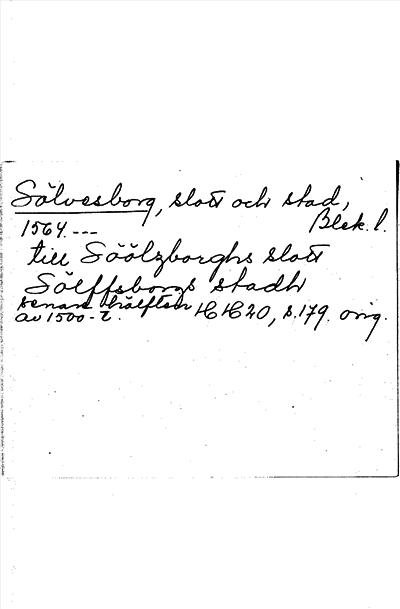 Sölvesborg, slott och stad,
Blek. l.
1564. ---
till Söölzborghs slott
Sölffsborgs stadh
senare hälften
av 1500-t. HH 20, s. 179. orig.